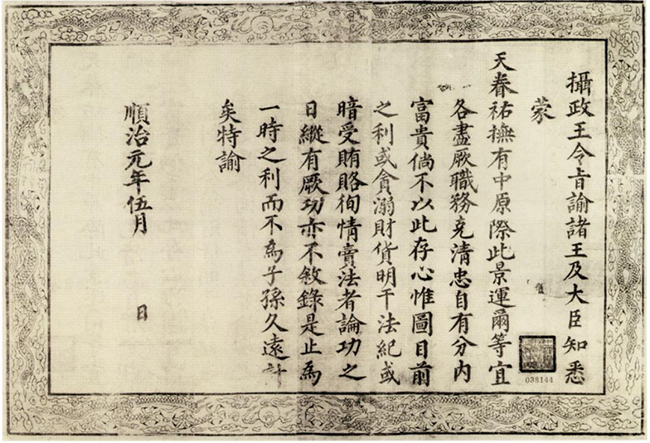 攝政王令旨諭諸王及大臣知悉
蒙
天眷祐撫有中原際此景運爾等宜
各盡厥職務克清忠自有分內
富貴倘不以此存心惟圖目前
之利或貪溺財貨明干法紀或
暗受賄賂徇情賣法者論功之
日縱有厥功亦不敘錄是止為
一時之利而不為子孫久遠計
矣特諭
順治元年伍月 日
038144